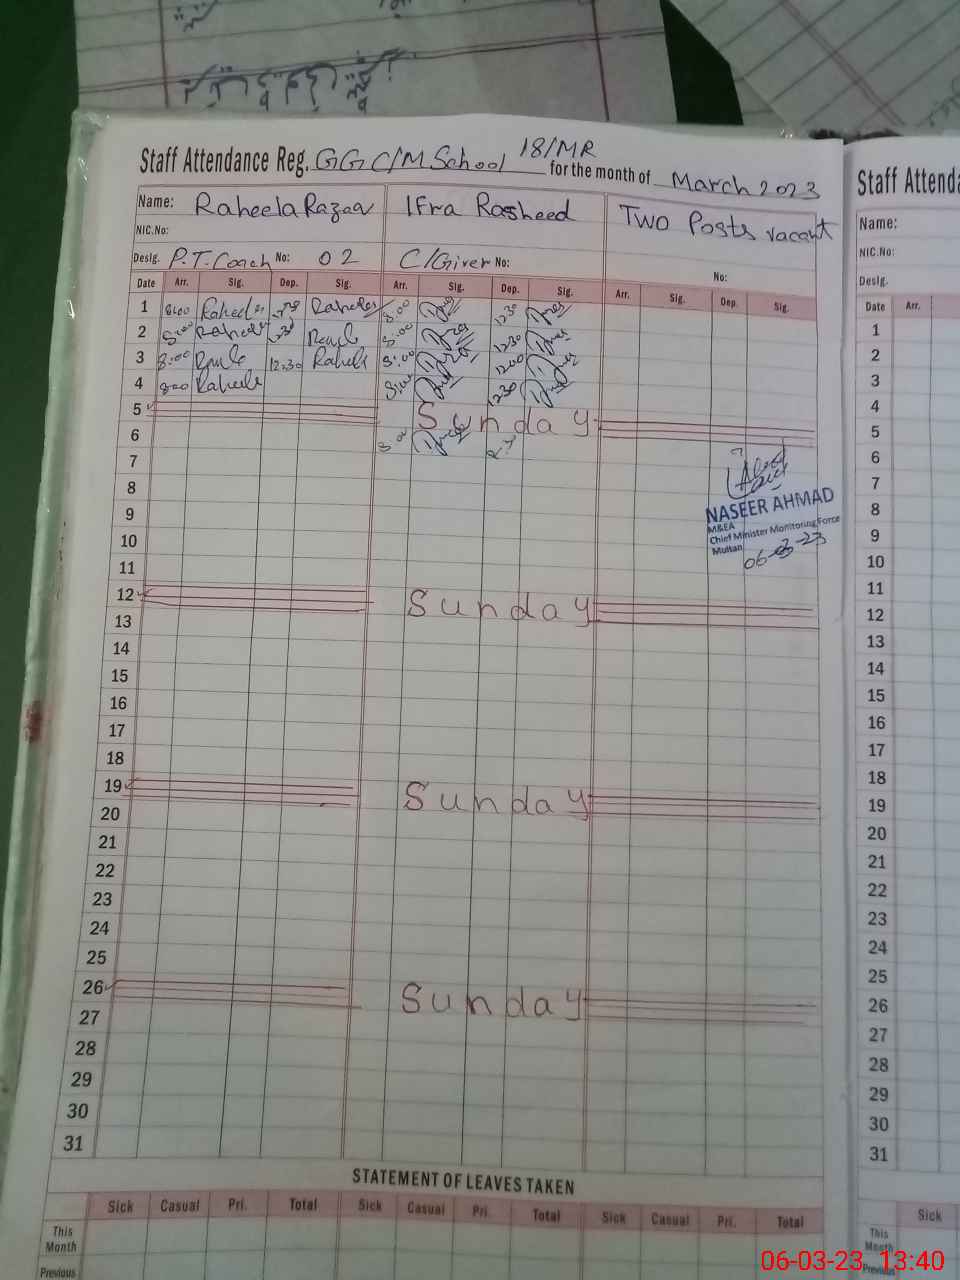 Staff Attendance Reg. GGC/M School 18/MR for the month of March 2023
Name: Raheela Razaq Ifra Rasheed Two Posts vacant
NIC.No:
Desig. P.T.Coach No: 02 C/Giver No: No:
Date Arr. Sig. Dep. Sig. Arr. Sig. Dep. Sig. Arr. Sig. Dep. Sig.
1 8:00 Raheela Raheela 8:00 1230
2 8:00 Raheela 8:00 1230
3 8:00 12:30 Raheela 8:00 1200
4 800 Raheela 8:00 1230
5 Sunday
6
7
8
NASEER AHMAD
M&EA
Chief Minister Monitoring Force
Multan
06-03-23
9
10
11
12 Sunday
13
14
15
16
17
18
19 Sunday
20
21
22
23
24
25
26 Sunday
27
28
29
30
31
STATEMENT OF LEAVES TAKEN
Sick Casual Pri. Total Sick Casual Pri. Total Sick Casual Pri. Total
This
Month
Previous
Staff Attend
Name:
NIC.No:
Desig.
Date Arr.
1
2
3
4
5
6
7
8
9
10
11
12
13
14
15
16
17
18
19
20
21
22
23
24
25
26
27
28
29
30
31
Sick
This
Month
Previous
06-03-23 13:40